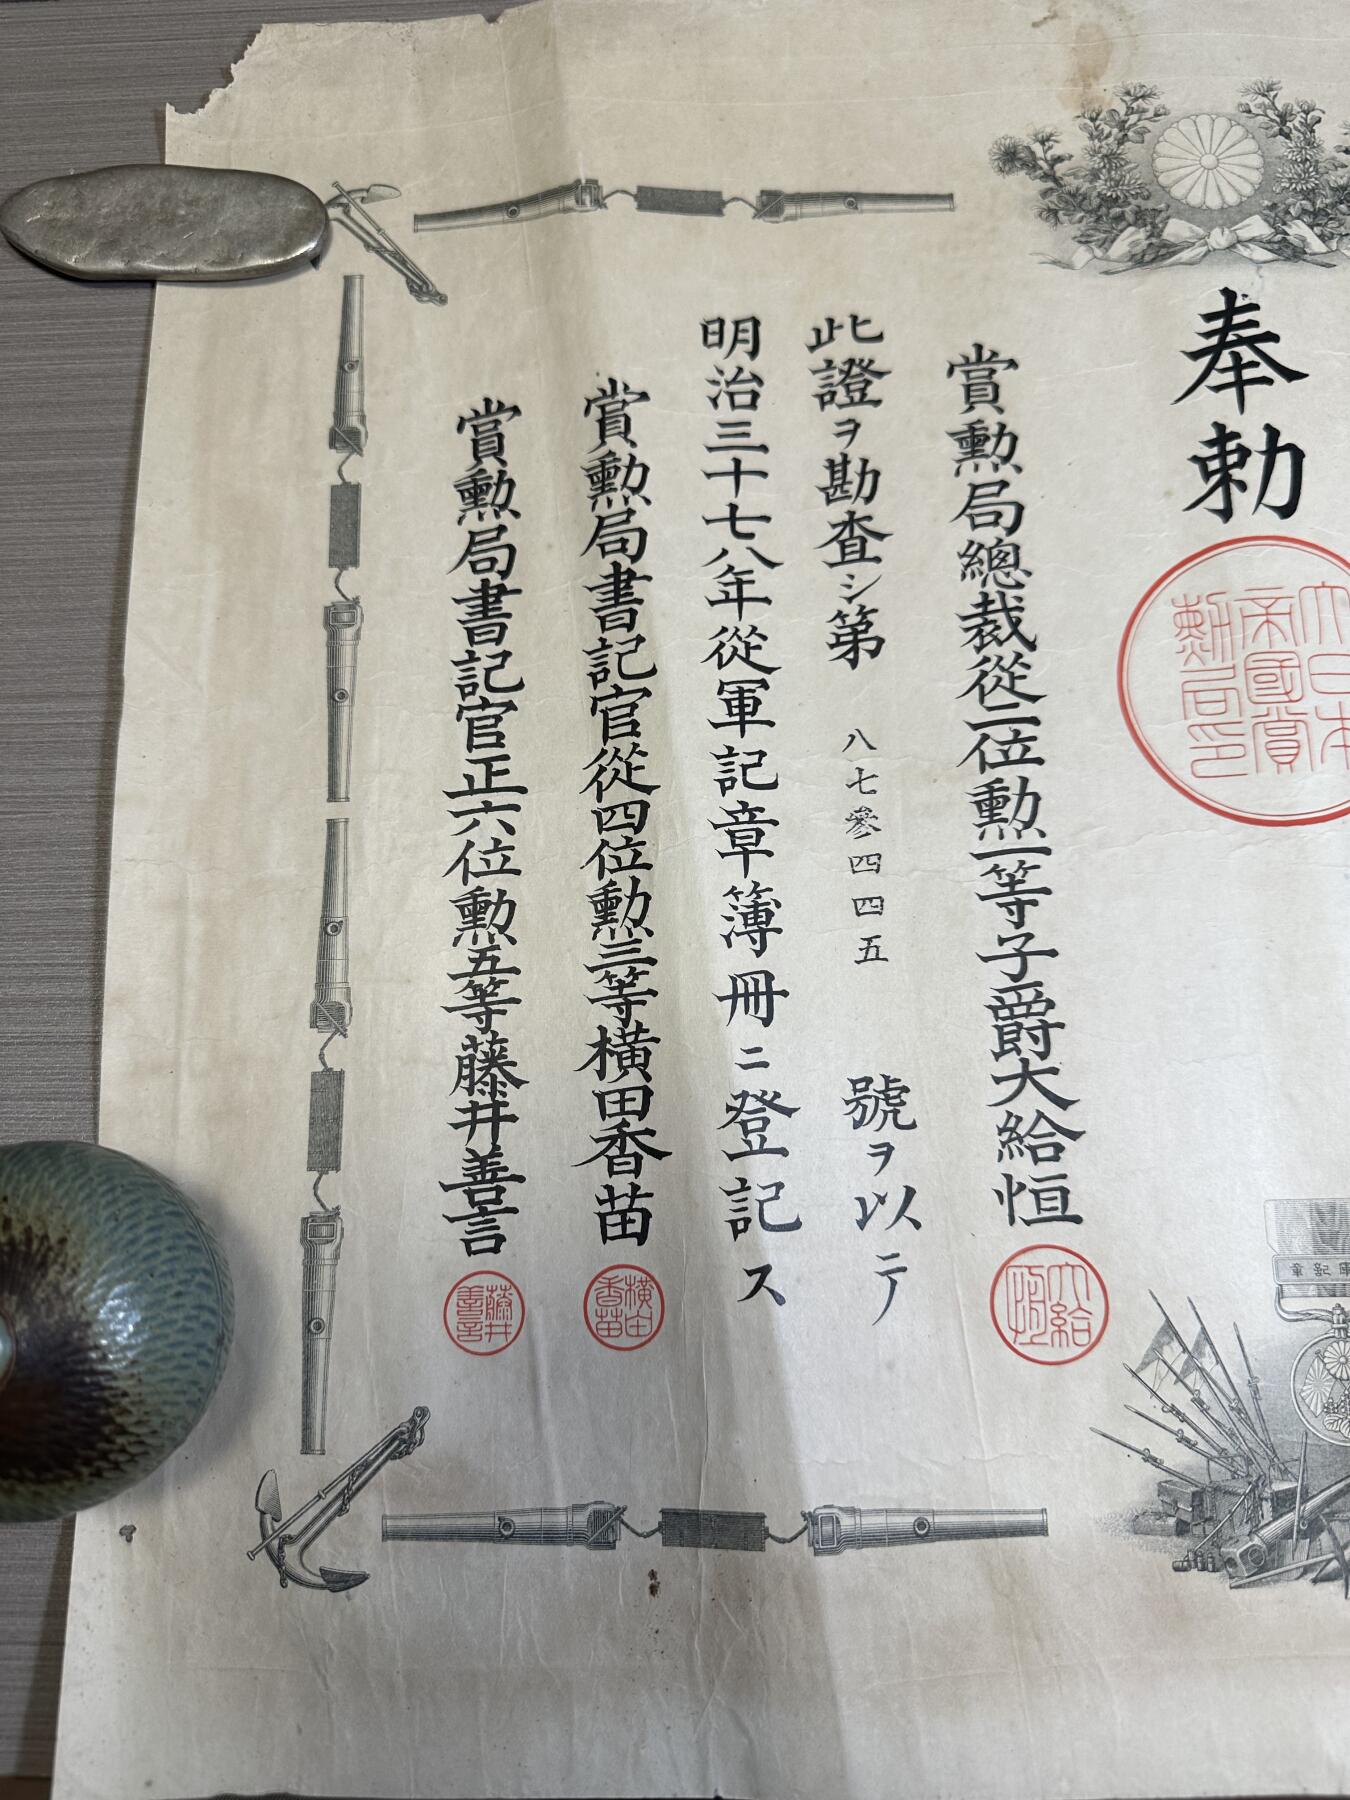 奉勅
大日本
帝國賞
勲局印
賞勲局總裁從二位勲一等子爵大給恒
大給
恒
此證ヲ勘査シ第八七參四四五號ヲ以テ
明治三十七八年從軍記章簿冊ニ登記ス
賞勲局書記官從四位勲三等横田香苗
横田
香苗
賞勲局書記官正六位勲五等藤井善言
藤井
善言
軍記章